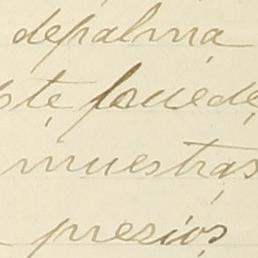 depalma
ste puede
muestras
presios